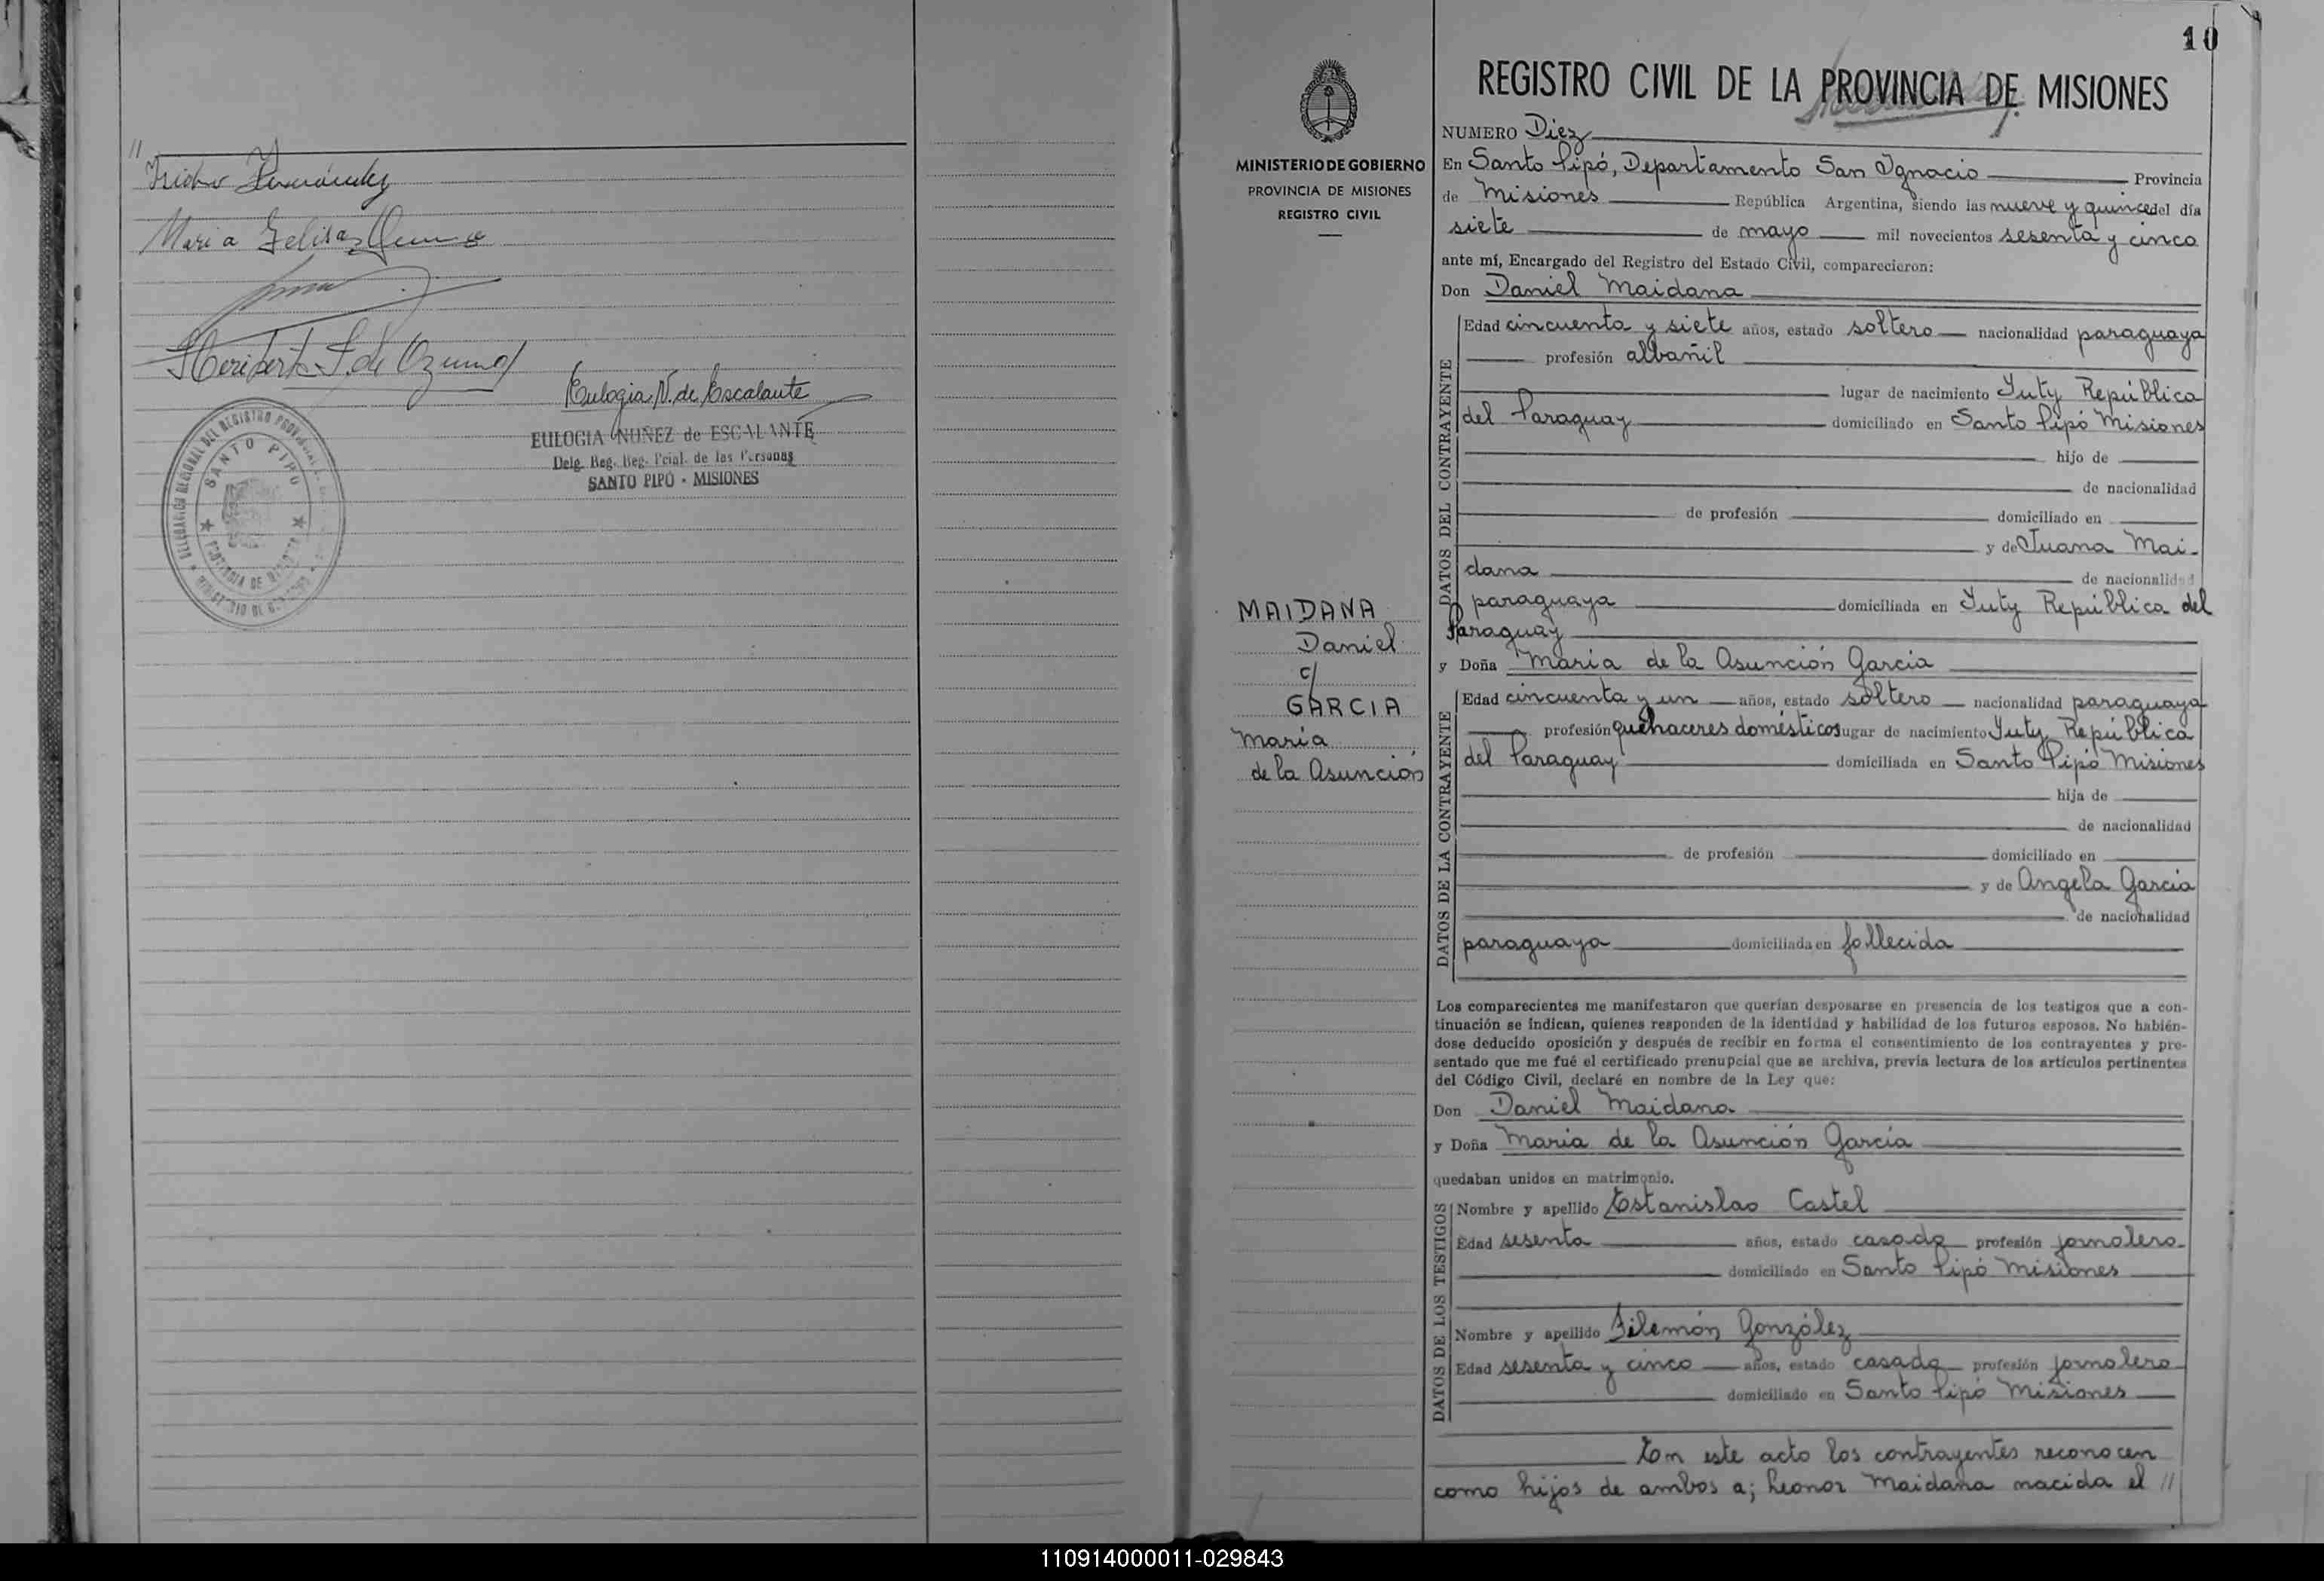 //
Isidro Fernández
Maria Felisa
Heriberto F. de Ozuna
Eulogia N. de Escalante
EULOGIA NUÑEZ de ESCALANTE
Delg. Reg. Reg. Pcial. de las Personas
SANTO PIPÓ - MISIONES
DELEGACION REGIONAL DEL REGISTRO PROVINCIAL
SANTO PIPO
PROVINCIA DE MISIONES
MINISTERIO DE GOBIERNO
10
MINISTERIO DE GOBIERNO
PROVINCIA DE MISIONES
REGISTRO CIVIL
MAIDANA
Daniel
c/
GARCIA
Maria
de la Asunción
REGISTRO CIVIL DE LA PROVINCIA DE MISIONES
NUMERO Diez
En Santo Pipó, Departamento San Ignacio Provincia
de Misiones República Argentina, siendo las nueve y quince del día
siete de mayo mil novecientos sesenta y cinco
ante mí, Encargado del Registro del Estado Civil, comparecieron:
Don Daniel Maidana
DATOS DEL CONTRAYENTE
Edad cincuenta y siete años, estado soltero nacionalidad paraguaya
profesión albañil
lugar de nacimiento Yuty República
del Paraguay domiciliado en Santo Pipó Misiones
hijo de
de nacionalidad
de profesión domiciliado en
y de Juana Mai-
dana de nacionalidad
paraguaya domiciliada en Yuty República del
Paraguay
y Doña Maria de la Asunción Garcia
DATOS DE LA CONTRAYENTE
Edad cincuenta y un años, estado soltero nacionalidad paraguaya
profesión quehaceres domésticos lugar de nacimiento Yuty República
del Paraguay domiciliada en Santo Pipó Misiones
hija de
de nacionalidad
de profesión domiciliado en
y de Angela Garcia
de nacionalidad
paraguaya domiciliada en fallecida
Los comparecientes me manifestaron que querían desposarse en presencia de los testigos que a con-
tinuación se indican, quienes responden de la identidad y habilidad de los futuros esposos. No habién-
dose deducido oposición y después de recibir en forma el consentimiento de los contrayentes y pre-
sentado que me fué el certificado prenupcial que se archiva, previa lectura de los artículos pertinentes
del Código Civil, declaré en nombre de la Ley que:
Don Daniel Maidana
y Doña Maria de la Asunción Garcia
quedaban unidos en matrimonio.
DATOS DE LOS TESTIGOS
Nombre y apellido Estanislao Castel
Edad sesenta años, estado casado profesión jornalero
domiciliado en Santo Pipó Misiones
Nombre y apellido Filemón González
Edad sesenta y cinco años, estado casado profesión jornalero
domiciliado en Santo Pipó Misiones
En este acto los contrayentes reconocen
como hijos de ambos a; Leonor Maidana nacida el //
110914000011-029843